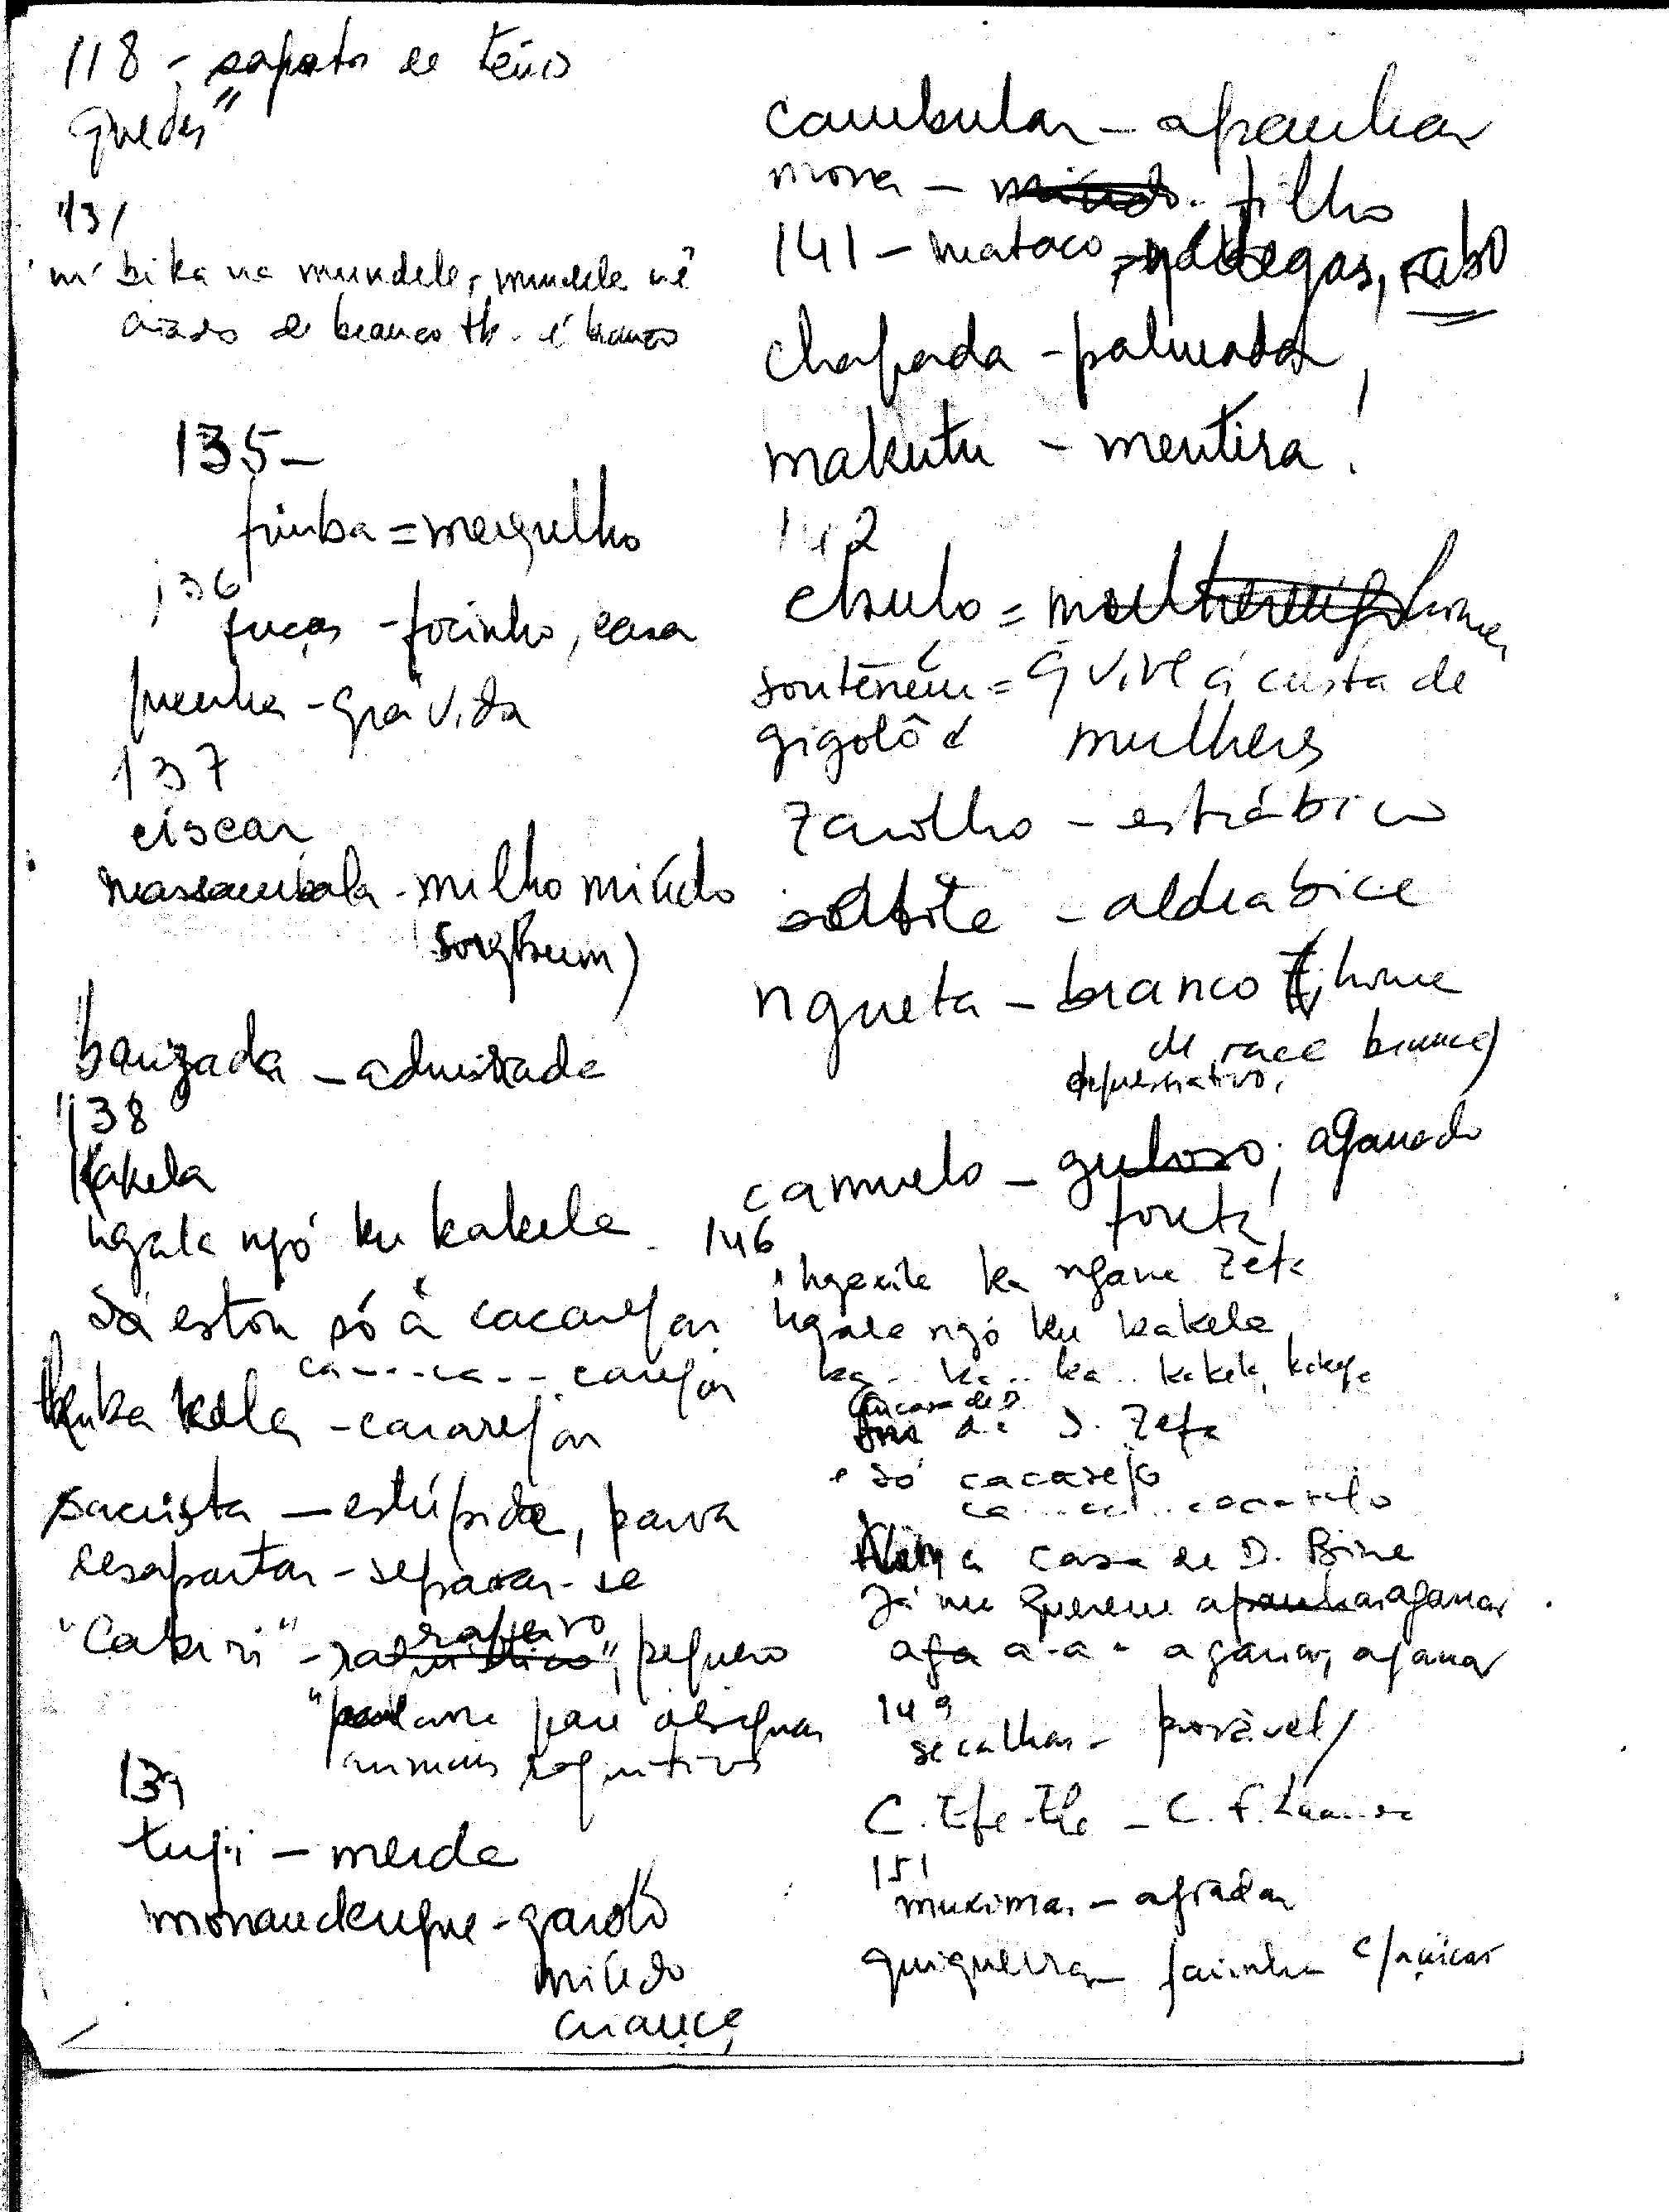 118 - sapatos de ténis
quedes"
131
m'bika ua mundele, mundele uê
criado de branco tb. é branco
135 -
fimba = mergulho
136
fuças - focinho, cara
prenha - grávida
137
ciscar
massambala - milho miúdo
sorghum)
banzada - admirada
138
Kakela
ngala ngó ku kakela
Já estou só a cacarejar
ca - - - ca - - - carejar
kukakela - cacarejar
sacrista - estúpida, parva
desapartar - separar-se
"Cabiri" - rafeiro, pequeno
palavra para designar
animais
139
tuji - merda
monandengue - garoto
miúdo
criança
cambular - apanhar
mona - miúdo. filho
141 - mataco - nádegas, rabo
chapada - palmada
makutu - mentira
142
chulo = homem
souteneur = q vive à custa de
gigolô mulheres
zarolho - estrábico
aldrabice
ngueta - branco (homem
de raça branca)
depreciativo,
camuelo - guloso; aganado
forreta
146
ngexile ka ngana Zefa
ngala ngó ku kakela
ka... ka... ka... kakela, kakela
em casa de D.
de D. Zefa
e só cacarejo
ca... ca... cacarejo
a casa de D. Bina
Já me querem apanhar aganar
aga a-a- aganar, aganar
149
se calhar - provável/
C. Efe-Ele - C. F. Luanda
151
muximar - agradar
quiquerra - farinha c/ açúcar